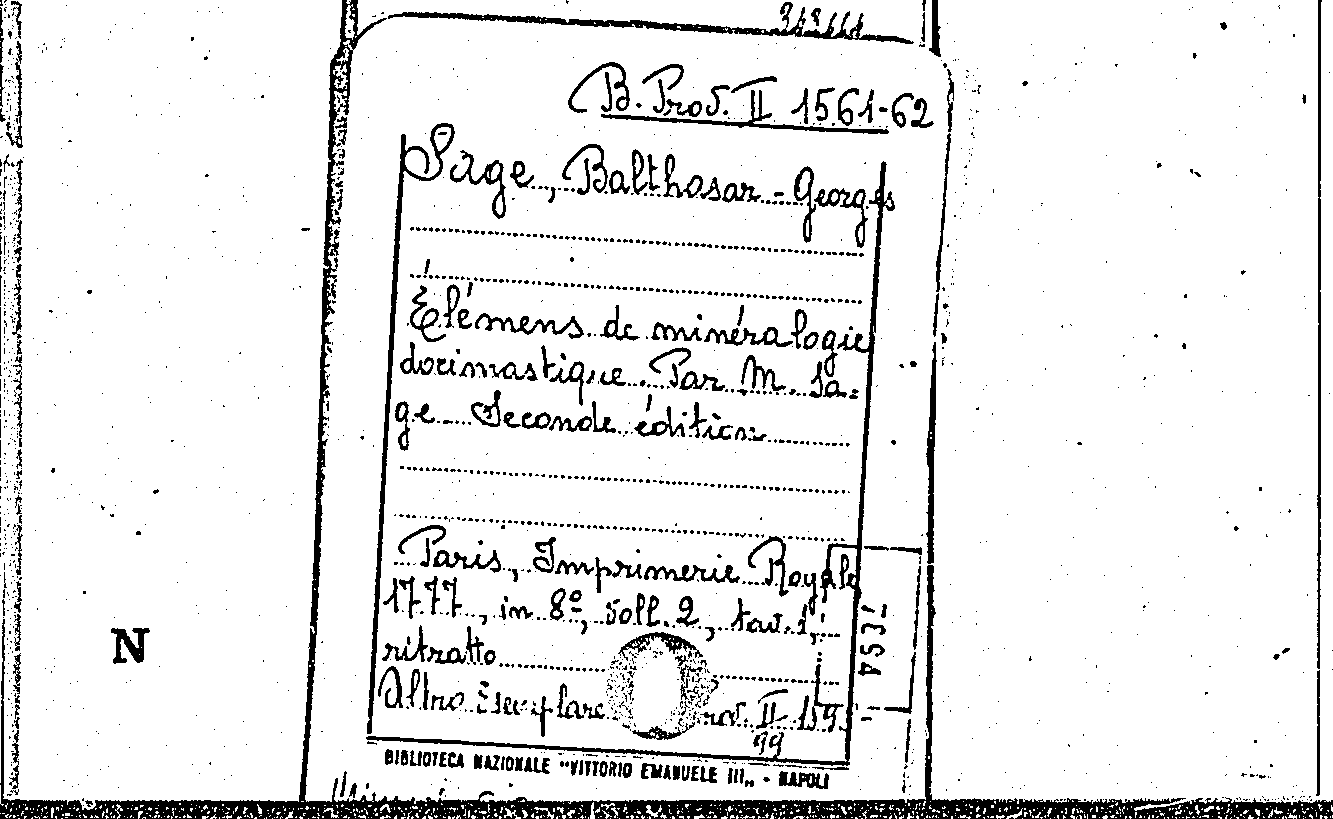 B. Prov. II 1561-62
Sage, Balthasar - Georges
Élémens de minéralogie
docimastique. Par M. Sa=
ge. Seconde édition
Paris, Imprimerie Royale
1777, in 8º, voll. 2, tav. 1,
ritratto
Altro Esemplare rov. II 1595-
99
BIBLIOTECA NAZIONALE "VITTORIO EMANUELE III" - NAPOLI
N